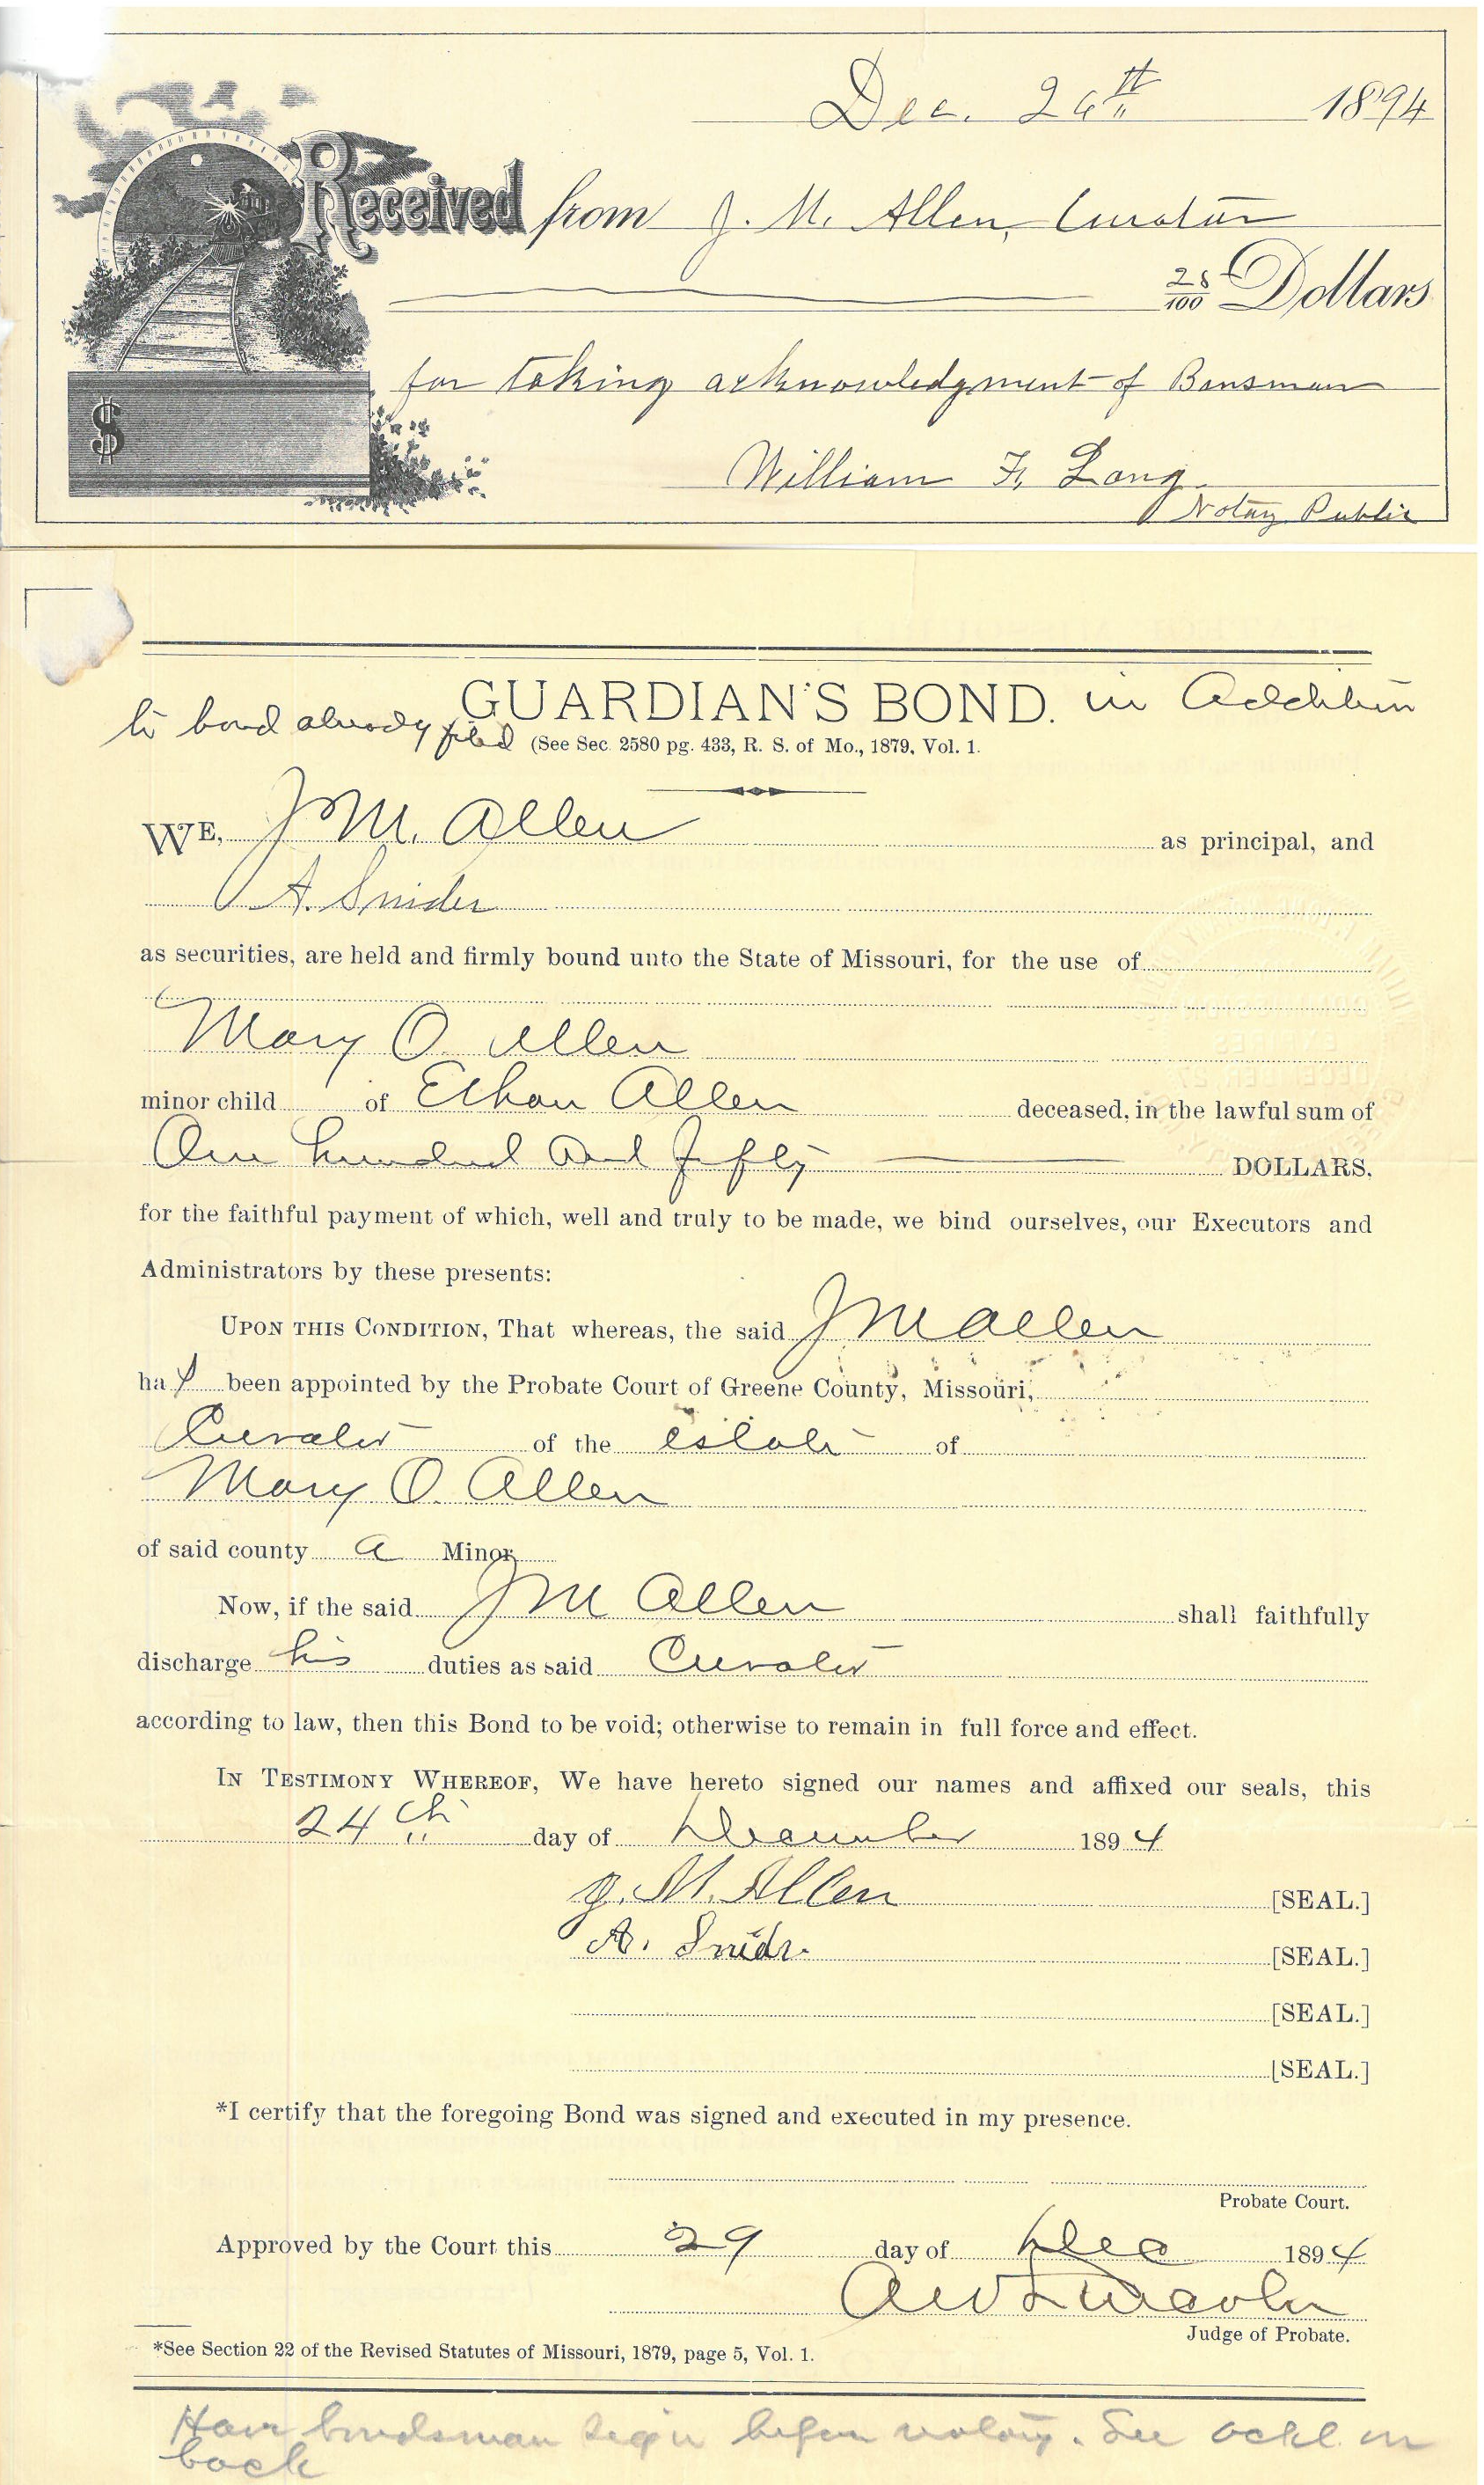 Dec. 26th 1894
Received from J. M. Allen, Curator
25/100 Dollars
for taking acknowledgment of Bonsman
William F. Lang
Notary Public
GUARDIAN'S BOND. in Addition
to bond already filed (See Sec. 2580 pg. 433, R. S. of Mo., 1879, Vol. 1.
WE, J M. Allen as principal, and
A. Snider
as securities, are held and firmly bound unto the State of Missouri, for the use of
Mary O. Allen
minor child of Ethan Allen deceased, in the lawful sum of
One hundred and fifty DOLLARS,
for the faithful payment of which, well and truly to be made, we bind ourselves, our Executors and
Administrators by these presents:
UPON THIS CONDITION, That whereas, the said J M Allen
has been appointed by the Probate Court of Greene County, Missouri,
Curator of the estate of
Mary O. Allen
of said county a Minor
Now, if the said J M Allen shall faithfully
discharge his duties as said Curator
according to law, then this Bond to be void; otherwise to remain in full force and effect.
IN TESTIMONY WHEREOF, We have hereto signed our names and affixed our seals, this
24th day of December 1894
J. M. Allen [SEAL.]
A. Snider [SEAL.]
[SEAL.]
[SEAL.]
*I certify that the foregoing Bond was signed and executed in my presence.
Probate Court.
Approved by the Court this 29 day of Dec 1894
A W Lincoln
Judge of Probate.
*See Section 22 of the Revised Statutes of Missouri, 1879, page 5, Vol. 1.
Have bondsman sign before notary. See ackl. on
back
$